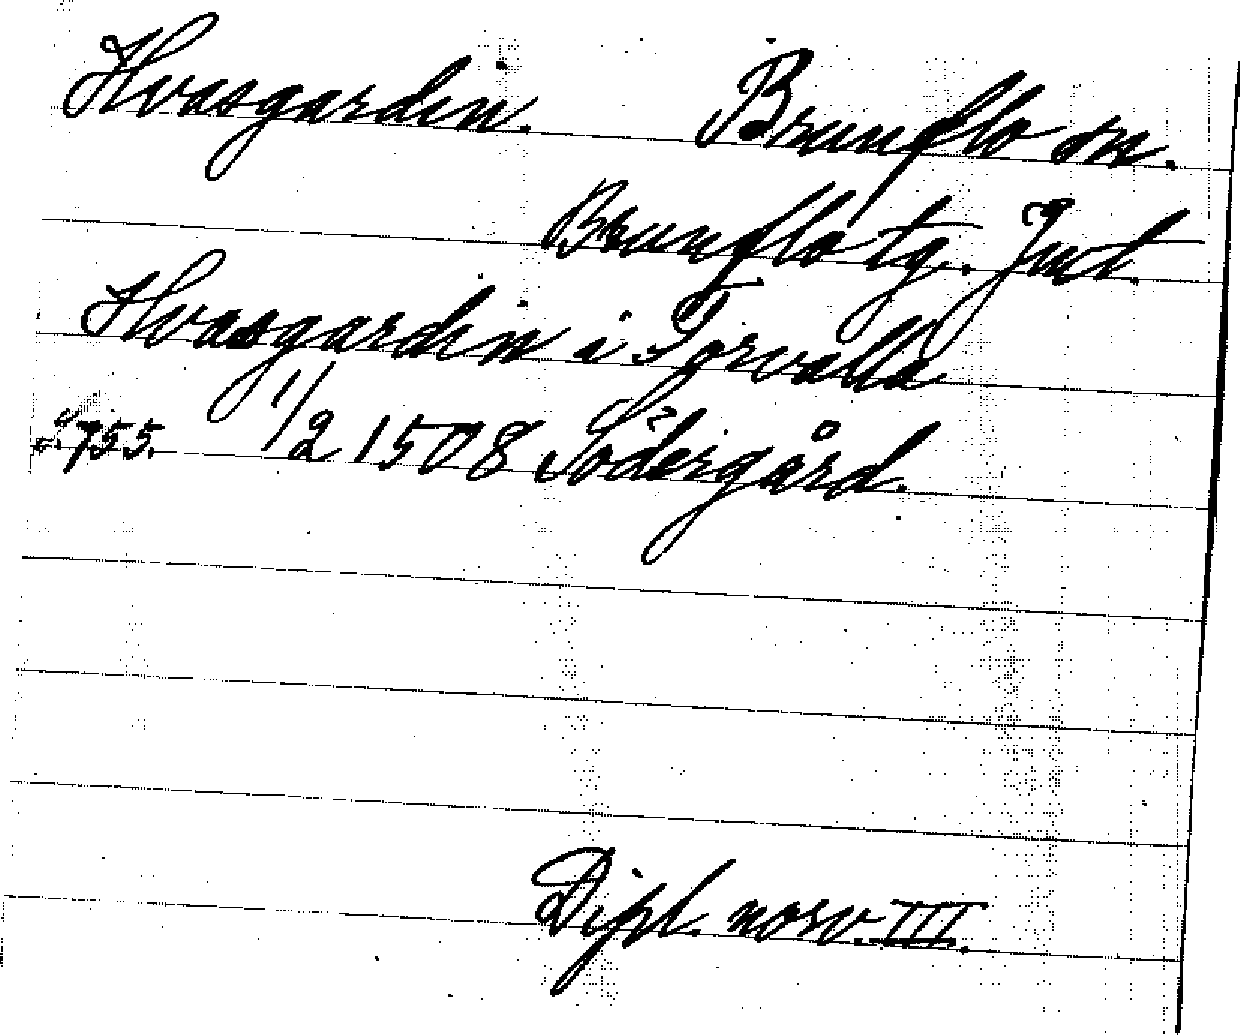 Hvasgarden. Brunflo sn.
Brunflo tg. Jmt.
Hvasgarden i Torvalla
s. 755. 1/2 1508 Södergård.
Dipl. norv. III.